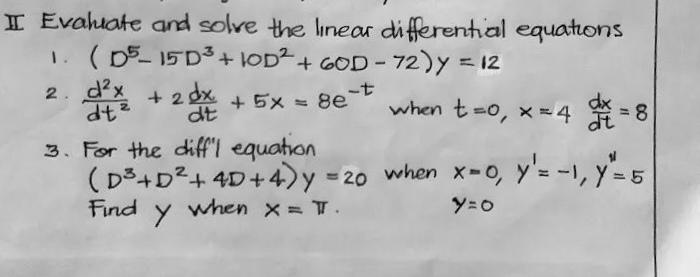 II Evaluate and solve the linear differential equations
1. (D⁵ - 15D³ + 10D² + 60D - 72)y = 12
2. d²x/dt² + 2 dx/dt + 5x = 8e⁻ᵗ when t=0, x=4 dx/dt = 8
3. For the diff'l equation
(D³+D²+4D+4)y = 20 when x=0, y'=-1, y"=5
Find y when x = π. y=0